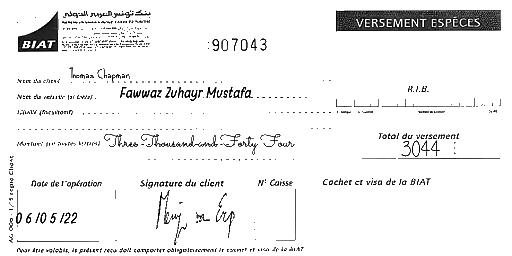 بنك تونس العربي الدولي
BIAT
VERSEMENT ESPÈCES
:907043
Nom du client Thomas Chapman
Nom du
Fawwaz Zuhayr Mustafa
R.I.B.
Montant (en toutes lettres) Three-Thousand-and-Forty Four
Total du versement
3044
Date de l'opération
Signature du client
N° Caisse
Cachet et visa de la BIAT
06/05/22
Pour être valable, le présent reçu doit comporter obligatoirement le cachet et visa de la BIAT